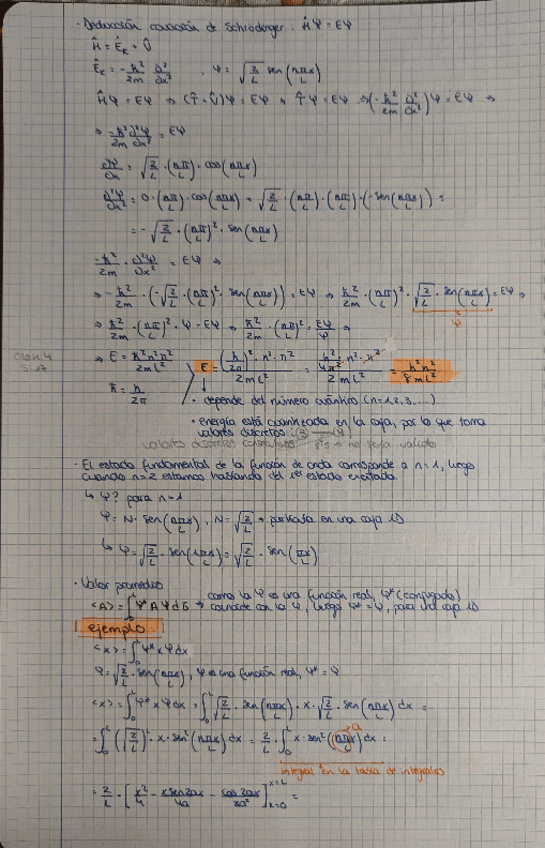 · Deducción ecuación de Schrödinger: ĤΨ = EΨ
Ĥ = Êₖ + Û
Êₖ = -ħ²/2m ∂²/∂x² , Ψ = √(2/L) sen(nπx/L)
ĤΨ = EΨ ⇒ (T̂ + Û)Ψ = EΨ , T̂Ψ = EΨ ⇒ (-ħ²/2m ∂²/∂x²)Ψ = EΨ ⇒
⇒ -ħ²/2m ∂²Ψ/∂x² = EΨ
∂Ψ/∂x = √(2/L) · (nπ/L) · cos(nπx/L)
∂²Ψ/∂x² = 0 · (nπ/L) · cos(nπx/L) + √(2/L) · (nπ/L) · (nπ/L) · (-sen(nπx/L)) =
= -√(2/L) · (nπ/L)² · sen(nπx/L)
-ħ²/2m · ∂²Ψ/∂x² = EΨ ⇒
⇒ -ħ²/2m · (-√(2/L) · (nπ/L)² · sen(nπx/L)) = EΨ ⇒ ħ²/2m · (nπ/L)² · √(2/L) · sen(nπx/L) = EΨ ⇒
Ψ
⇒ ħ²/2m · (nπ/L)² · Ψ = EΨ ⇒ ħ²/2m · (nπ/L)² = EΨ/Ψ ⇒
⇒ E = ħ²n²π²/2mL² E = (h/2π)² · n² · π² / 2mL² = h²/4π² · n² · π² / 2mL² = h²n²/8mL²
ħ = h/2π
· depende del número cuántico (n=1,2,3,...)
· energía está cuantizada en la caja, por lo que toma
valores discretos
· El estado fundamental de la función de onda corresponde a n=1, luego
cuando n=2 estamos hablando del 1er estado excitado.
↳ Ψ? para n=1
Ψ = N · sen(nπx/L) , N = √(2/L) → partícula en una caja 1D
↳ Ψ = √(2/L) · sen(1πx/L) = √(2/L) · sen(πx/L)
· Valor promedio
<A> = ∫₀ᴸ Ψ* A Ψ dτ → como la Ψ es una función real, Ψ* (conjugado)
coincide con la Ψ, luego Ψ* = Ψ, para una caja 1D
ejemplo
<x> = ∫₀ᴸ Ψ* x Ψ dx
Ψ = √(2/L) · sen(nπx/L) , Ψ es una función real, Ψ* = Ψ
<x> = ∫₀ᴸ Ψ* x Ψ dx = ∫₀ᴸ √(2/L) · sen(nπx/L) · x · √(2/L) · sen(nπx/L) dx =
= ∫₀ᴸ (√(2/L))² · x · sen²(nπx/L) dx = 2/L · ∫₀ᴸ x · sen²(nπx/L) dx =
a
integral en la tabla de integrales
= 2/L · [x²/4 - x sen2ax/4a - cos2ax/8a²]ₓ₌₀ˣ⁼ᴸ =